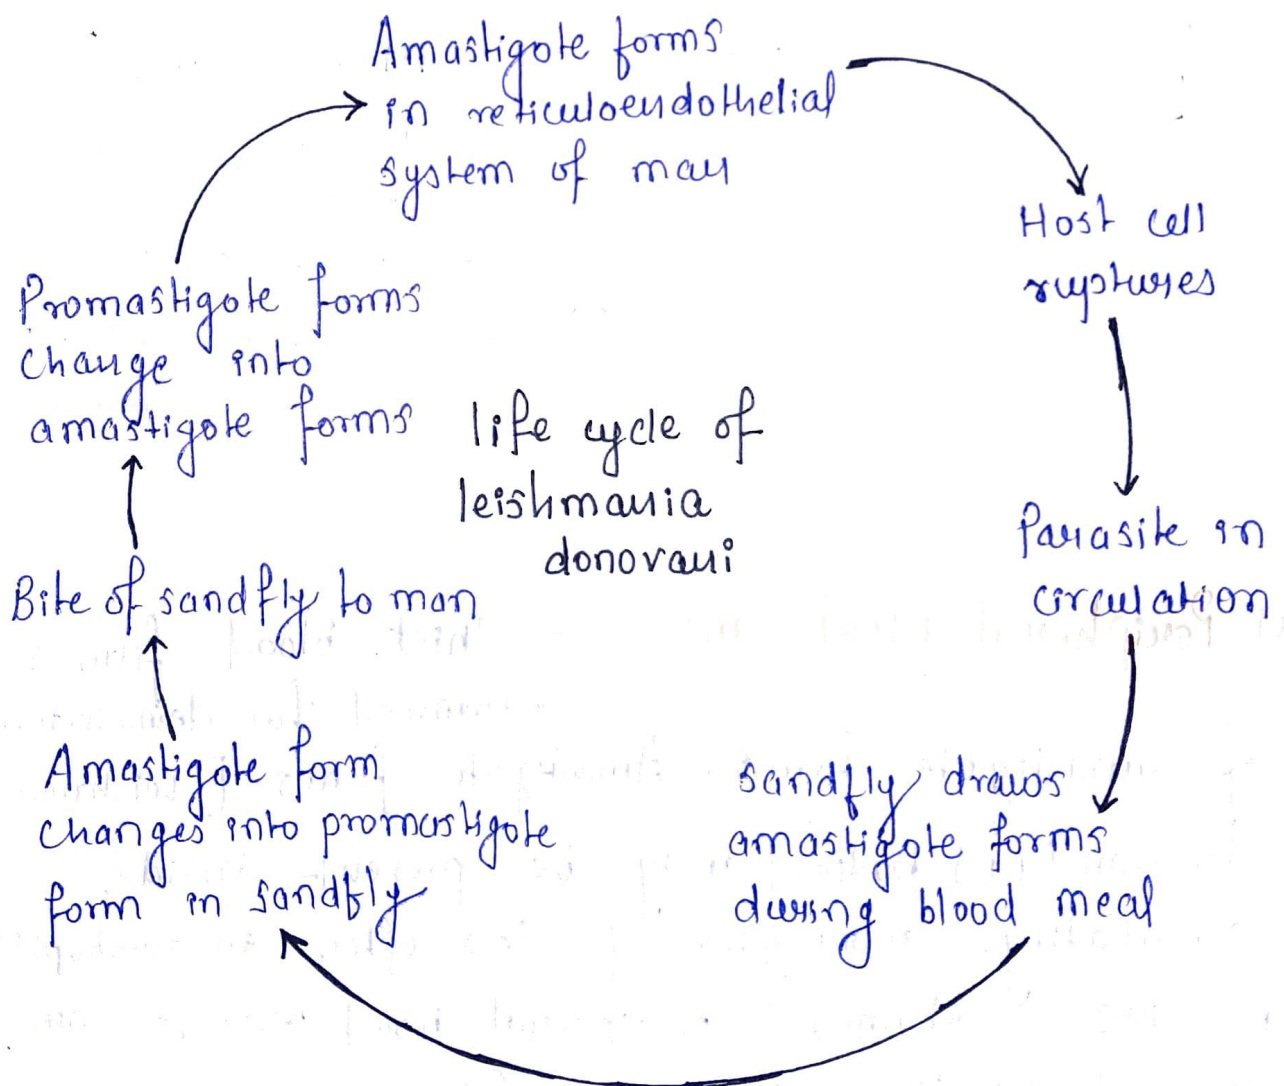 Amastigote forms
in reticuloendothelial
system of man
Host cell
ruptures
Parasite in
circulation
sandfly draws
amastigote forms
during blood meal
Amastigote form
changes into promastigote
form in sandfly
Bite of sandfly to man
Promastigote forms
change into
amastigote forms
life cycle of
leishmania
donovani